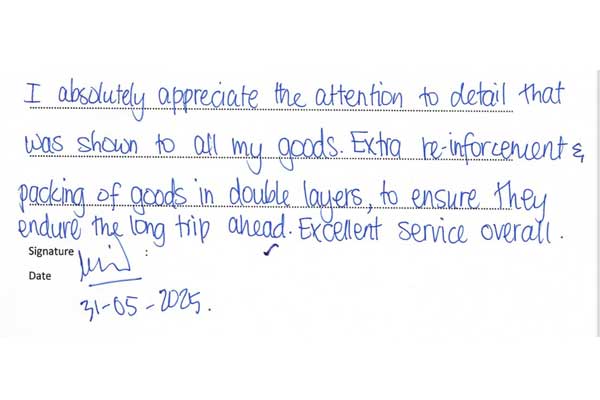 I absolutely appreciate the attention to detail that
was shown to all my goods. Extra re-inforcement &
packing of goods in double layers, to ensure they
endure the long trip ahead. Excellent service overall.
Signature :
Date
31-05-2025.